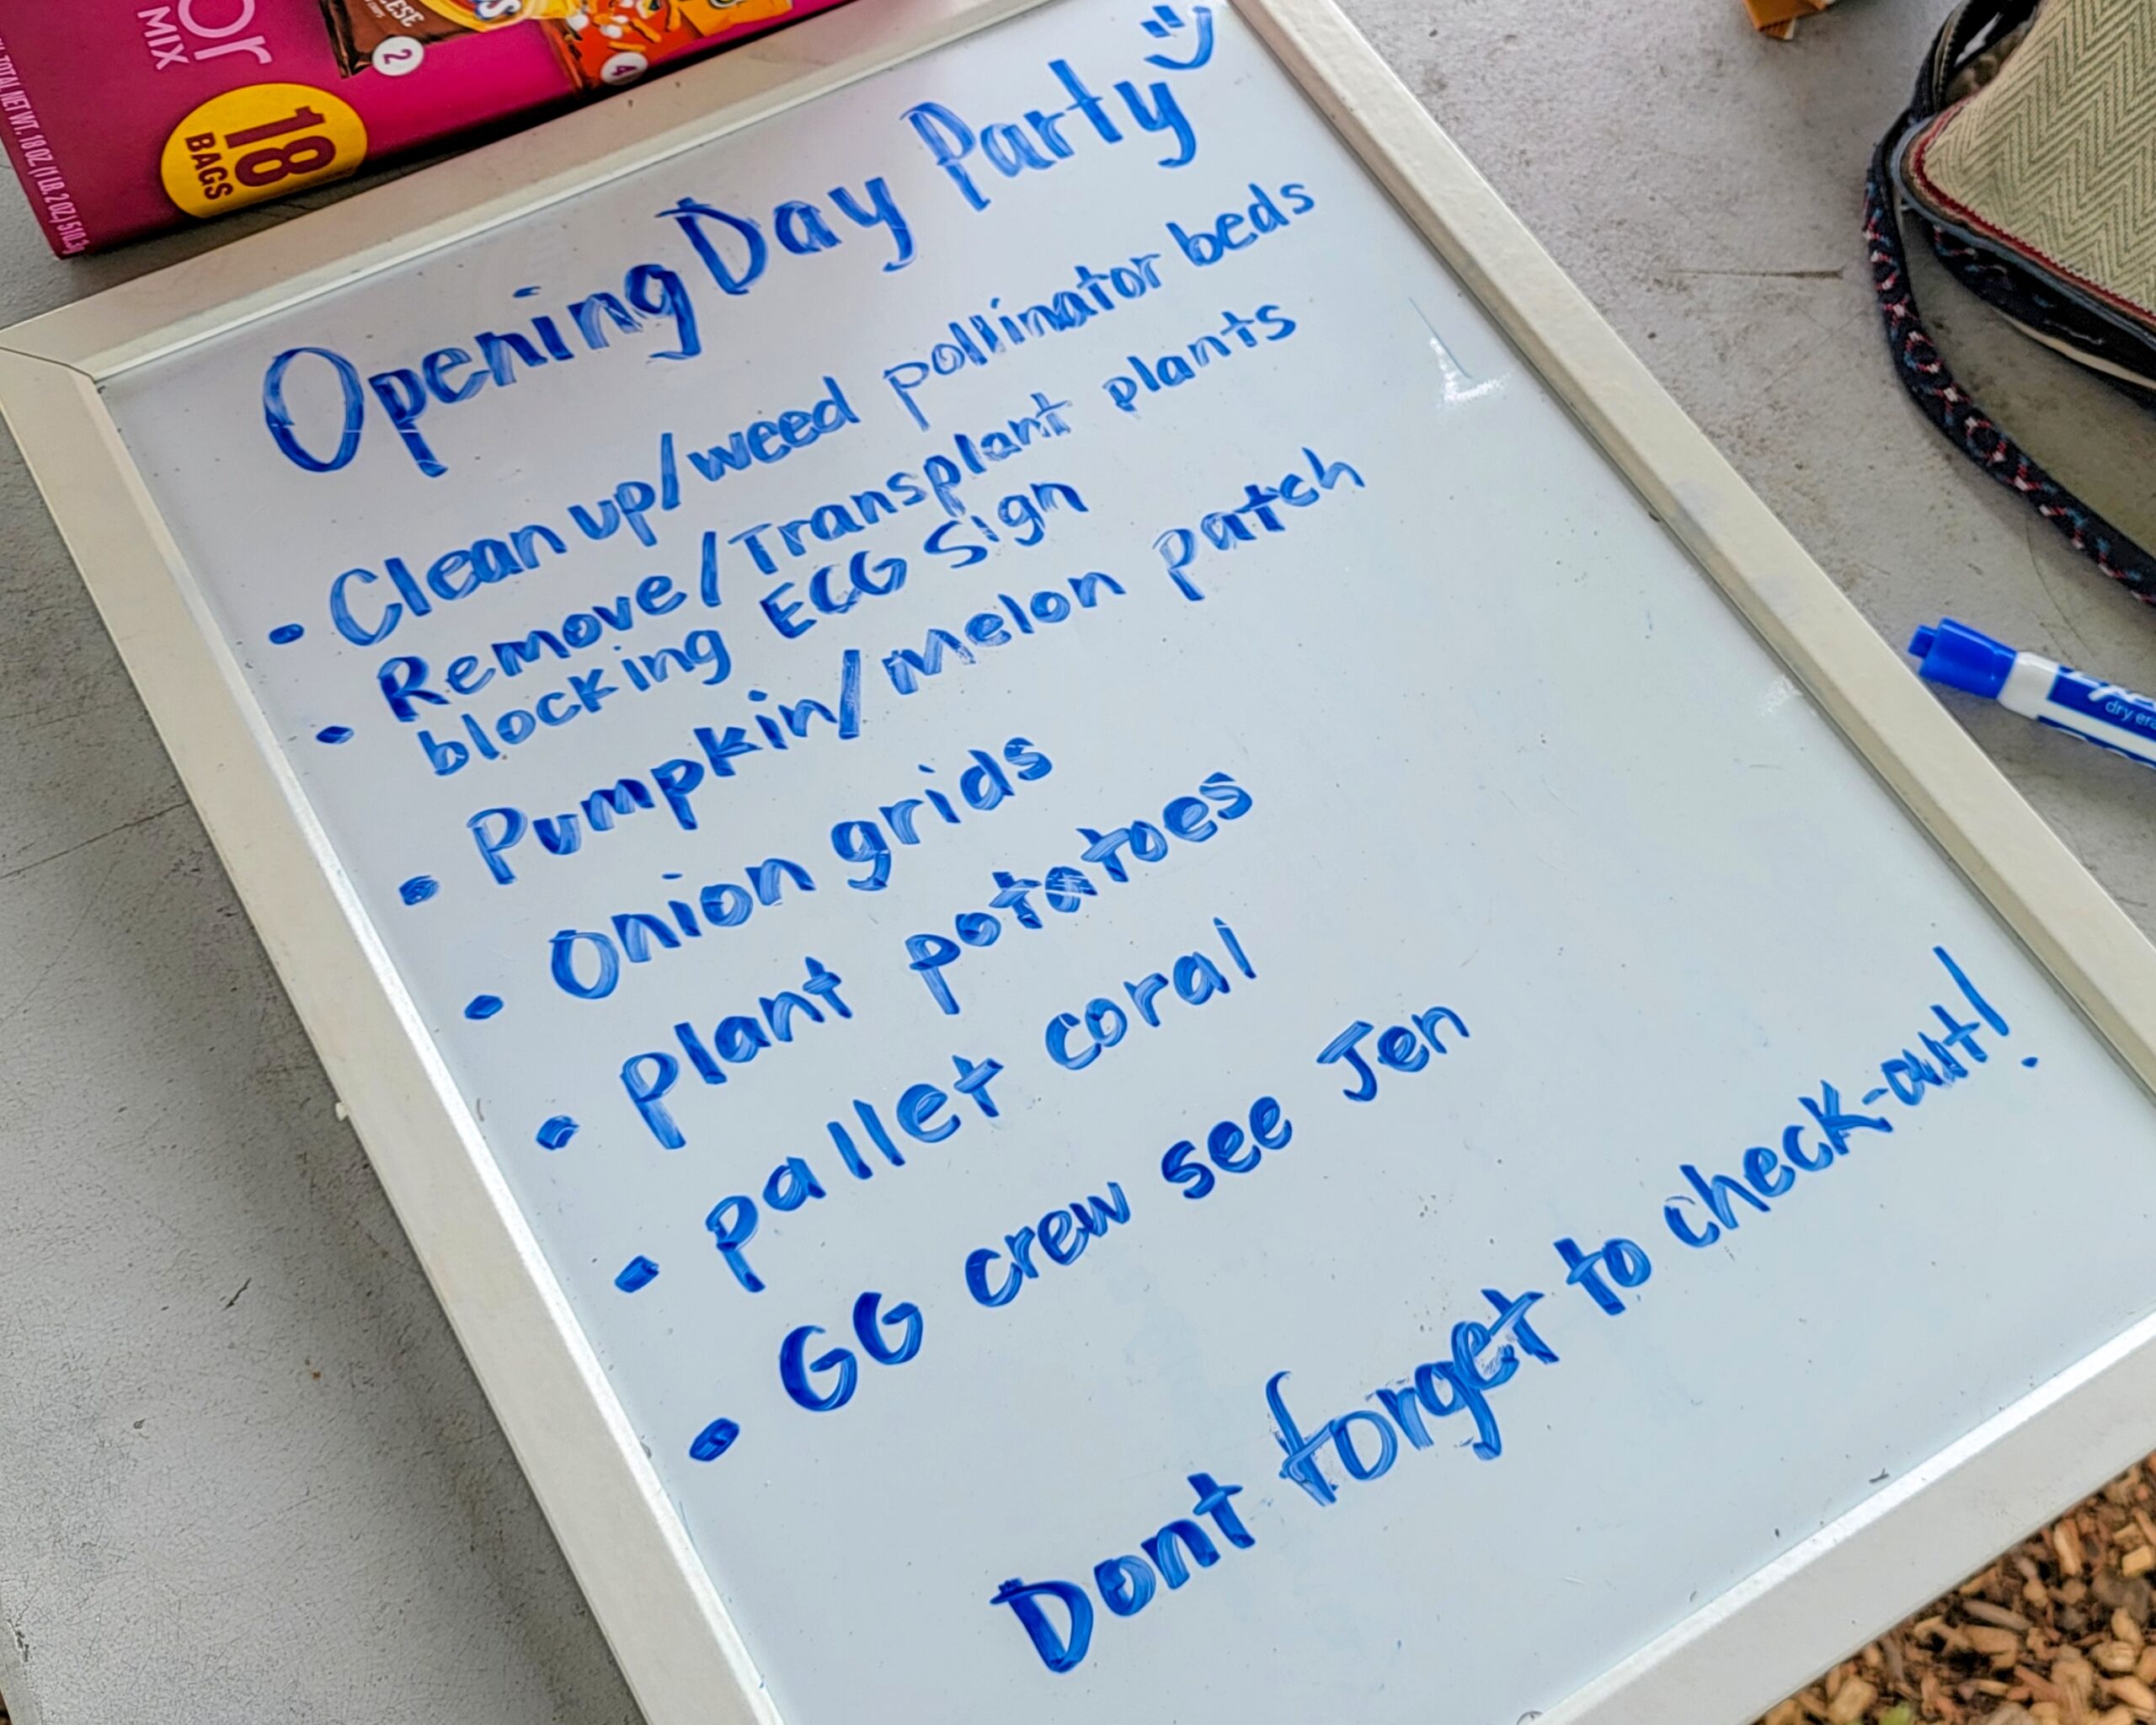 or
MIX
TOTAL NET WT. 18 OZ (1 LB. 2 OZ) 510.3
18
BAGS
2
4
Opening Day Party
• Clean up/weed pollinator beds
• Remove/Transplant plants
blocking ECG Sign
• Pumpkin/melon patch
• Onion grids
• plant potatoes
• pallet coral
• GG crew see Jen
Dont forget to check-out!
dry era